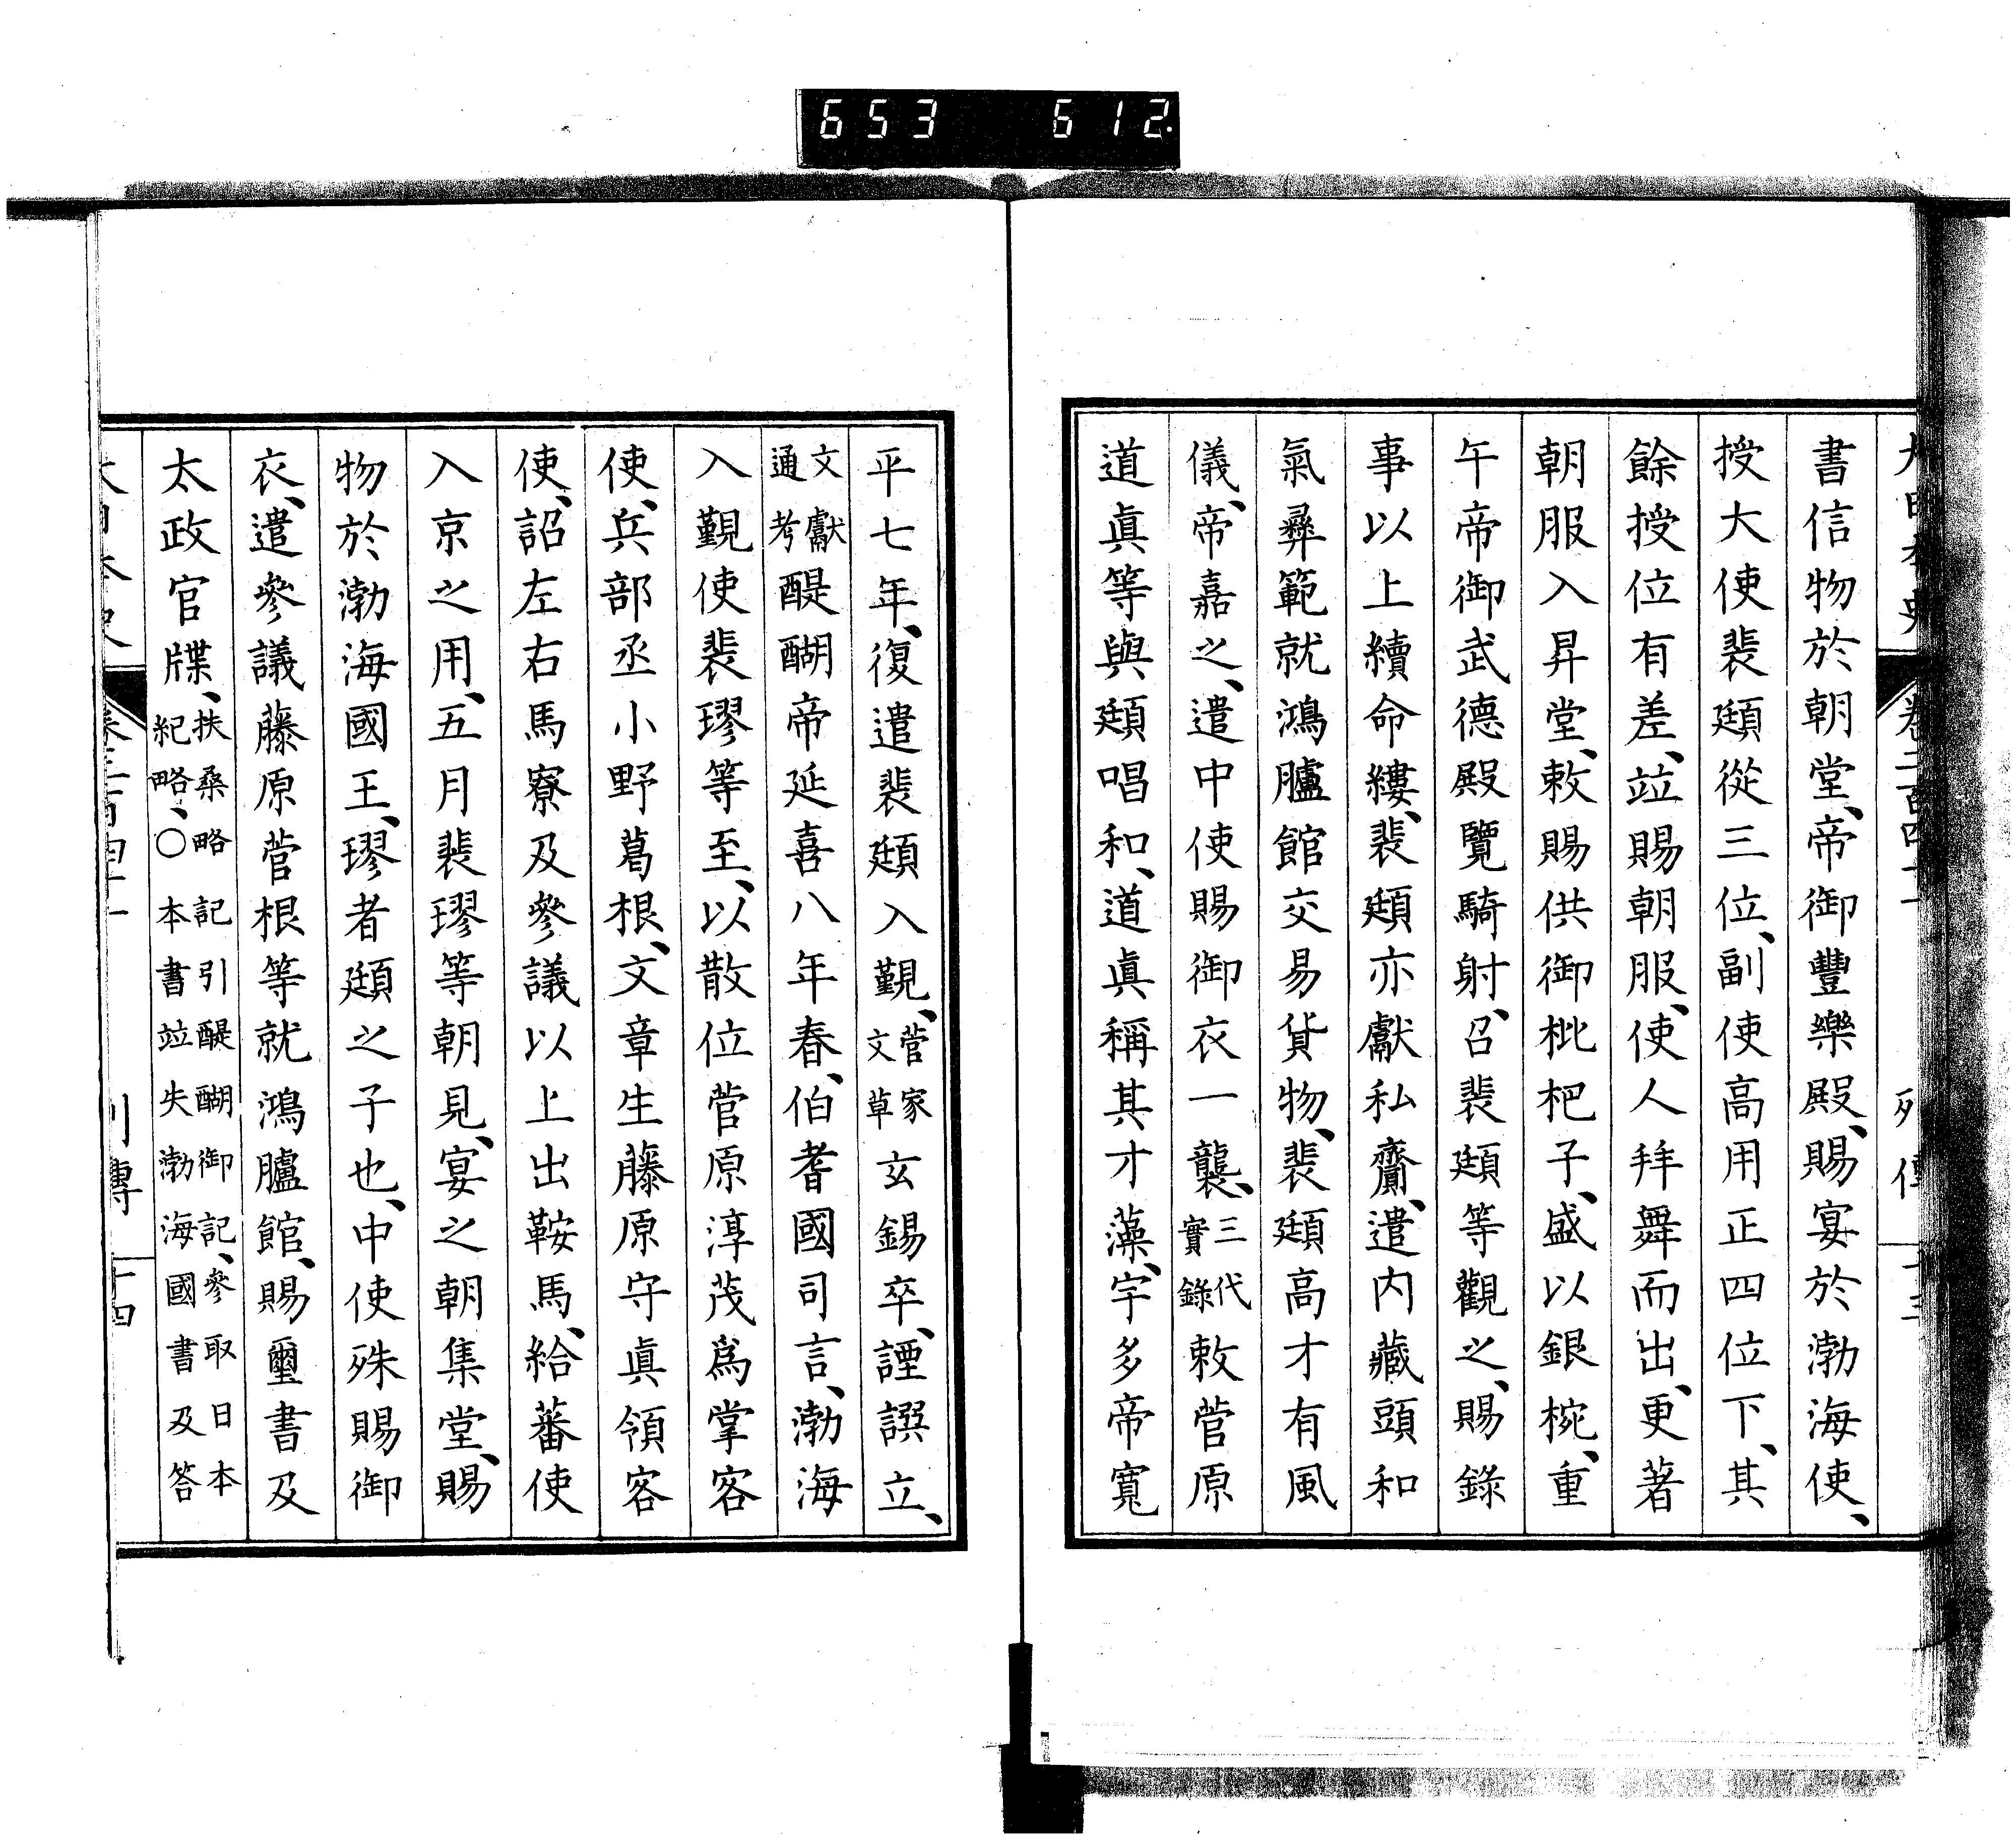 653 612
大日本史 卷二百四十 列傳 十三
書信物於朝堂、帝御豐樂殿、賜宴於渤海使、
授大使裴頲從三位、副使高用正四位下、其
餘授位有差、竝賜朝服、使人拜舞而出、更著
朝服入昇堂、敕賜供御枇杷子、盛以銀椀、重
午帝御武德殿覽騎射、召裴頲等觀之、賜錄
事以上續命縷、裴頲亦獻私齎、遣内藏頭和
氣彝範就鴻臚館交易貨物、裴頲高才有風
儀、帝嘉之、遣中使賜御衣一襲、三代實錄敕菅原
道眞等與頲唱和、道眞稱其才藻、宇多帝寬
平七年、復遣裴頲入覲、菅家文草玄錫卒、諲譔立、
文獻通考醍醐帝延喜八年春、伯耆國司言、渤海
入覲使裴璆等至、以散位菅原淳茂爲掌客
使、兵部丞小野葛根、文章生藤原守眞領客
使、詔左右馬寮及參議以上出鞍馬、給蕃使
入京之用、五月裴璆等朝見、宴之朝集堂、賜
物於渤海國王、璆者頲之子也、中使殊賜御
衣、遣參議藤原菅根等就鴻臚館、賜璽書及
太政官牒、扶桑略記引醍醐御記、參取日本紀略、○本書竝失渤海國書及答
大日本史 列傳 十四